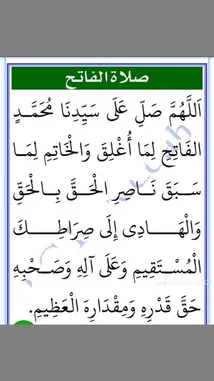 صلاة الفاتح
اَللَّهُمَّ صَلِّ عَلَى سَيِّدِنَا مُحَمَّدٍ
الفَاتِحِ لِمَا أُغْلِقَ وَالْخَاتِمِ لِمَا
سَبَقَ نَاصِرِ الْحَقِّ بِالْحَقِّ
وَالْهَادِى إِلَى صِرَاطِكَ
الْمُسْتَقِيمِ وَعَلَى آلِهِ وَصَحْبِهِ
حَقَّ قَدْرِهِ وَمِقْدَارِهِ الْعَظِيمِ.